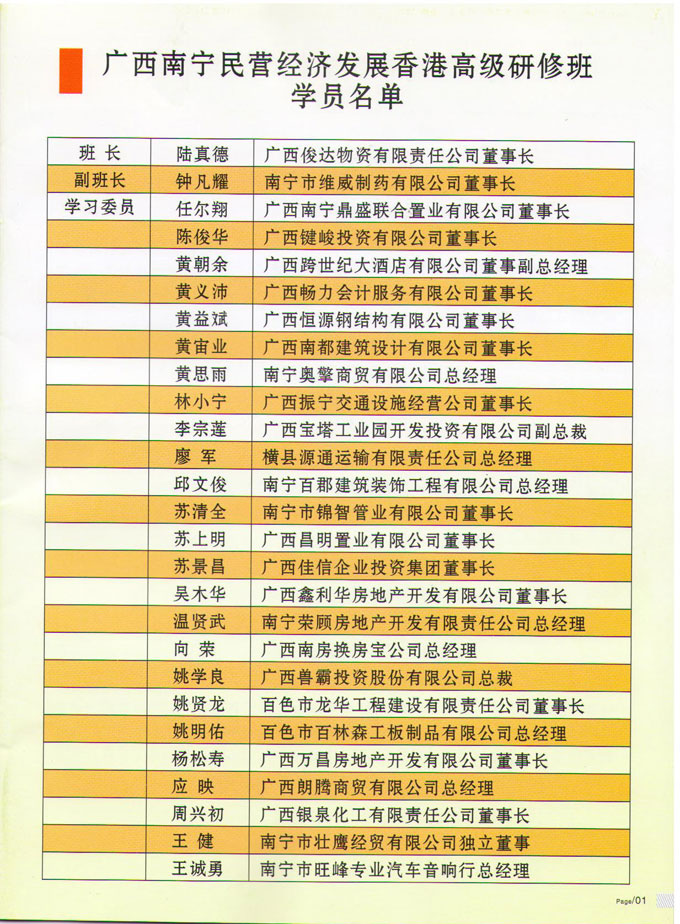 广西南宁民营经济发展香港高级研修班
学员名单
班 长 陆真德 广西俊达物资有限责任公司董事长
副班长 钟凡耀 南宁市维威制药有限公司董事长
学习委员 任尔翔 广西南宁鼎盛联合置业有限公司董事长
陈俊华 广西键峻投资有限公司董事长
黄朝余 广西跨世纪大酒店有限公司董事副总经理
黄义沛 广西畅力会计服务有限公司董事长
黄益斌 广西恒源钢结构有限公司董事长
黄宙业 广西南都建筑设计有限公司董事长
黄思雨 南宁奥擎商贸有限公司总经理
林小宁 广西振宁交通设施经营公司董事长
李宗莲 广西宝塔工业园开发投资有限公司副总裁
廖 军 横县源通运输有限责任公司总经理
邱文俊 南宁百郡建筑装饰工程有限公司总经理
苏清全 南宁市锦智管业有限公司董事长
苏上明 广西昌明置业有限公司董事长
苏景昌 广西佳信企业投资集团董事长
吴木华 广西鑫利华房地产开发有限公司董事长
温贤武 南宁荣顾房地产开发有限责任公司总经理
向 荣 广西南房换房宝公司总经理
姚学良 广西兽霸投资股份有限公司总裁
姚贤龙 百色市龙华工程建设有限责任公司董事长
姚明佑 百色市百林森工板制品有限公司总经理
杨松寿 广西万昌房地产开发有限公司董事长
应 映 广西朗腾商贸有限公司总经理
周兴初 广西银泉化工有限责任公司董事长
王 健 南宁市壮鹰经贸有限公司独立董事
王诚勇 南宁市旺峰专业汽车音响行总经理
Page/01